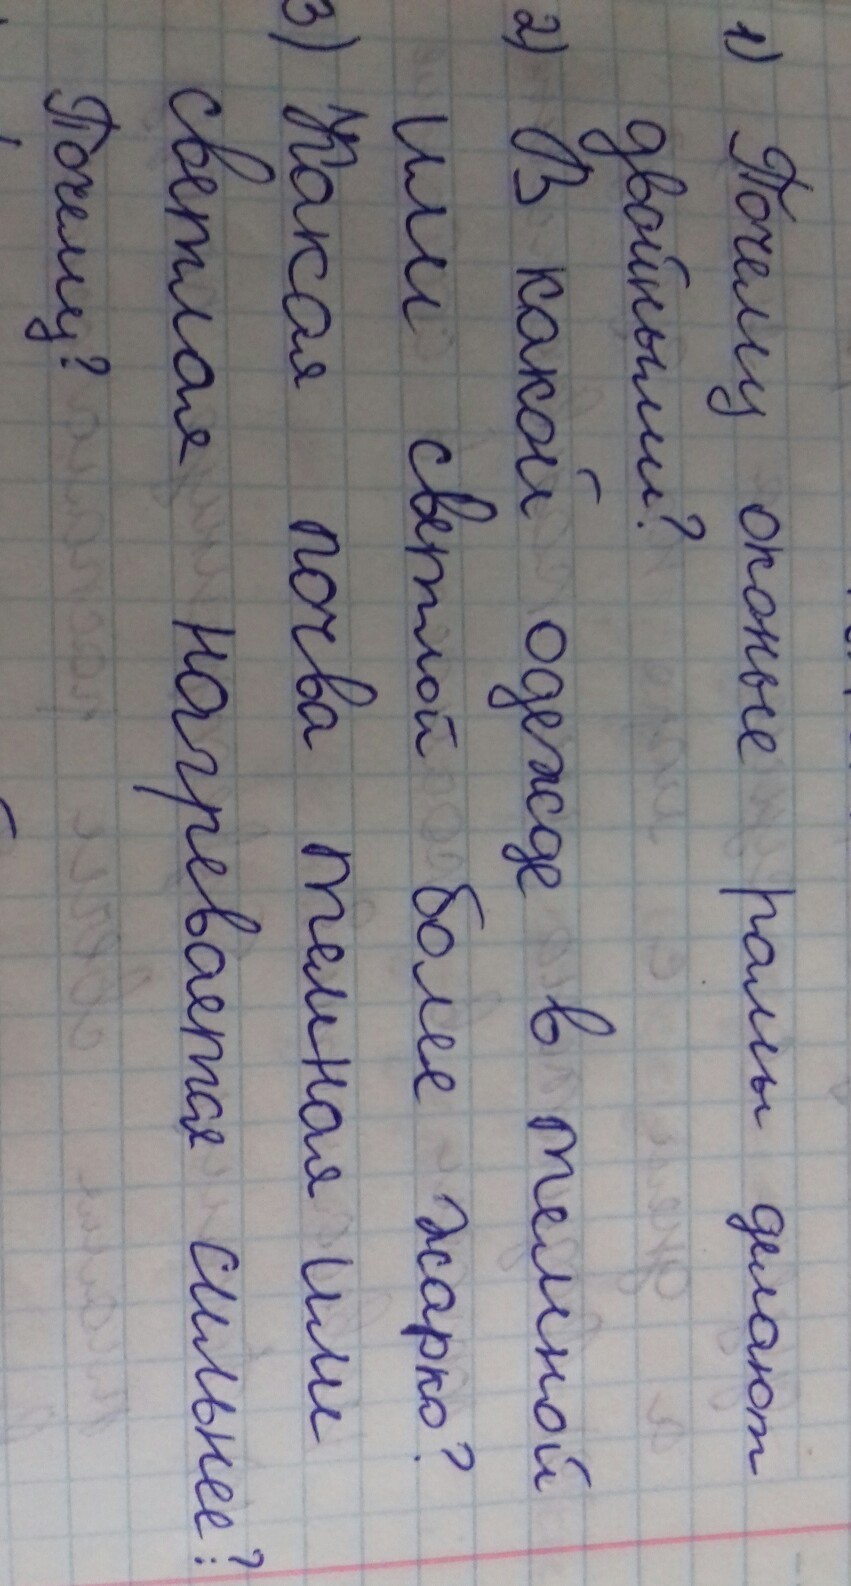 1) Почему оконые рамы делают
двойными?
2) В какой одежде в темной
или светлой более жарко?
3) Какая почва темная или
светлая нагревается сильнее?
Почему?